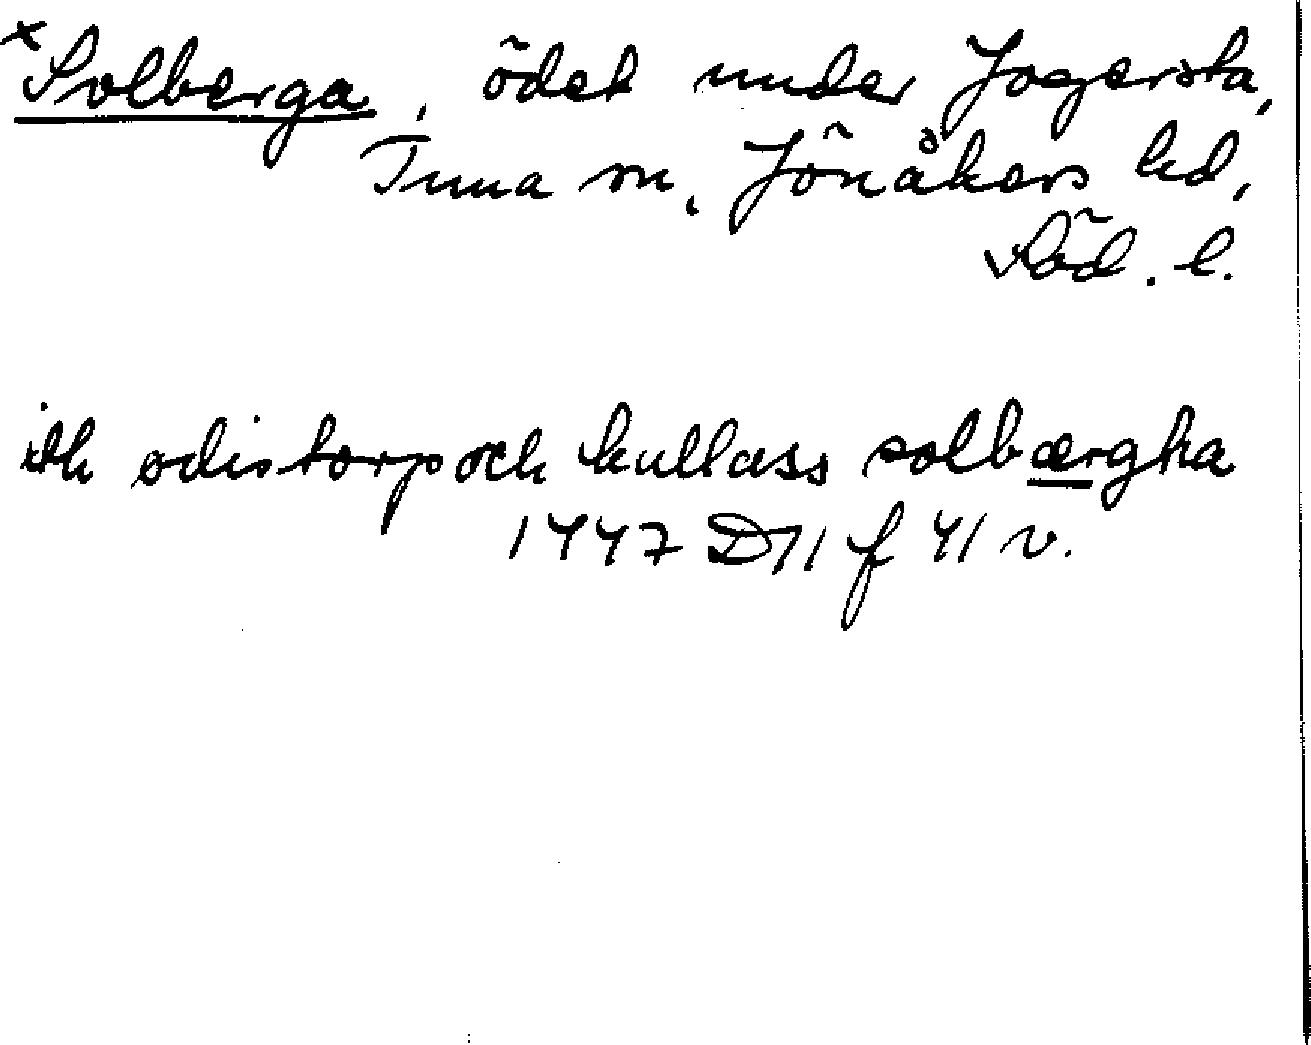 x Solberga, ödet under Jogersta,
Tuna sn, Jönåkers hd,
Söd. l.
ith odistorp och kullass solbærgha
1447 D11 f 41 v.